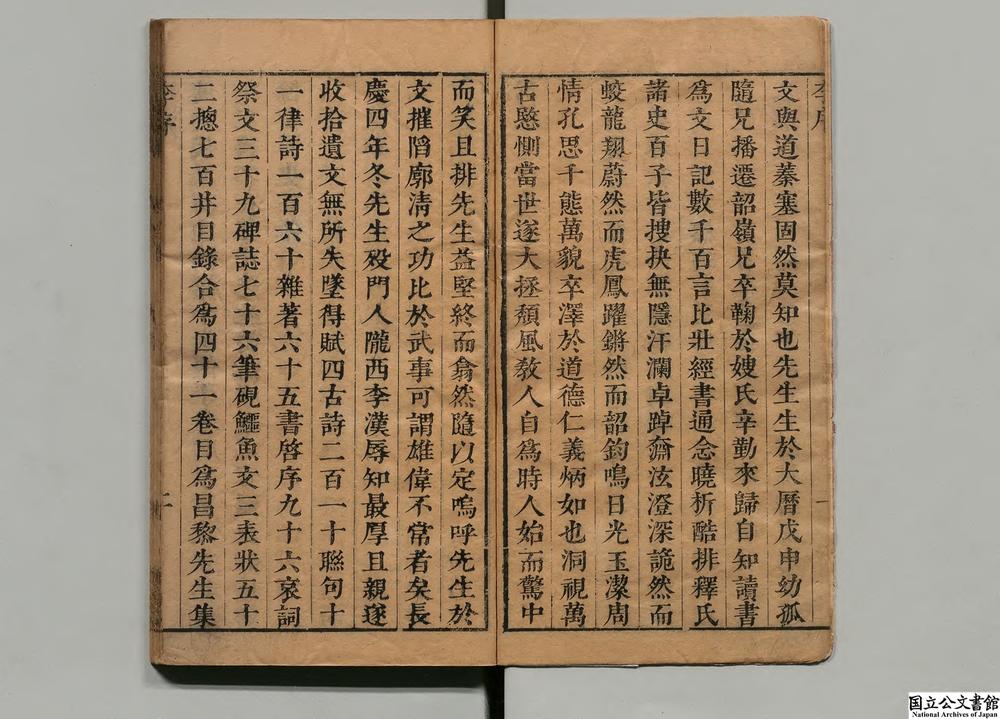 文與道蓁塞固然莫知也先生生於大曆戊申幼孤
隨兄播遷韶嶺兄卒鞠於嫂氏辛勤來歸自知讀書
爲文日記數千百言比壯經書通念曉析酷排釋氏
諸史百子皆搜抉無隱汗瀾卓踔奫泫澄深詭然而
蛟龍翔蔚然而虎鳳躍鏘然而韶鈞鳴日光玉潔周
情孔思千態萬貌卒澤於道德仁義炳如也洞視萬
古愍惻當世遂大拯頹風敎人自爲時人始而驚中
而笑且排先生益堅終而翕然隨以定嗚呼先生於
文摧䧟廓淸之功比於武事可謂雄偉不常者矣長
慶四年冬先生歿門人隴西李漢辱知最厚且親遂
收拾遺文無所失墜得賦四古詩二百一十聯句十
一律詩一百六十雜著六十五書啓序九十六哀詞
祭文三十九碑誌七十六筆硯鱷魚文三表狀五十
二摠七百并目錄合爲四十一卷目爲昌黎先生集
李序
二
国立公文書館
National Archives of Japan